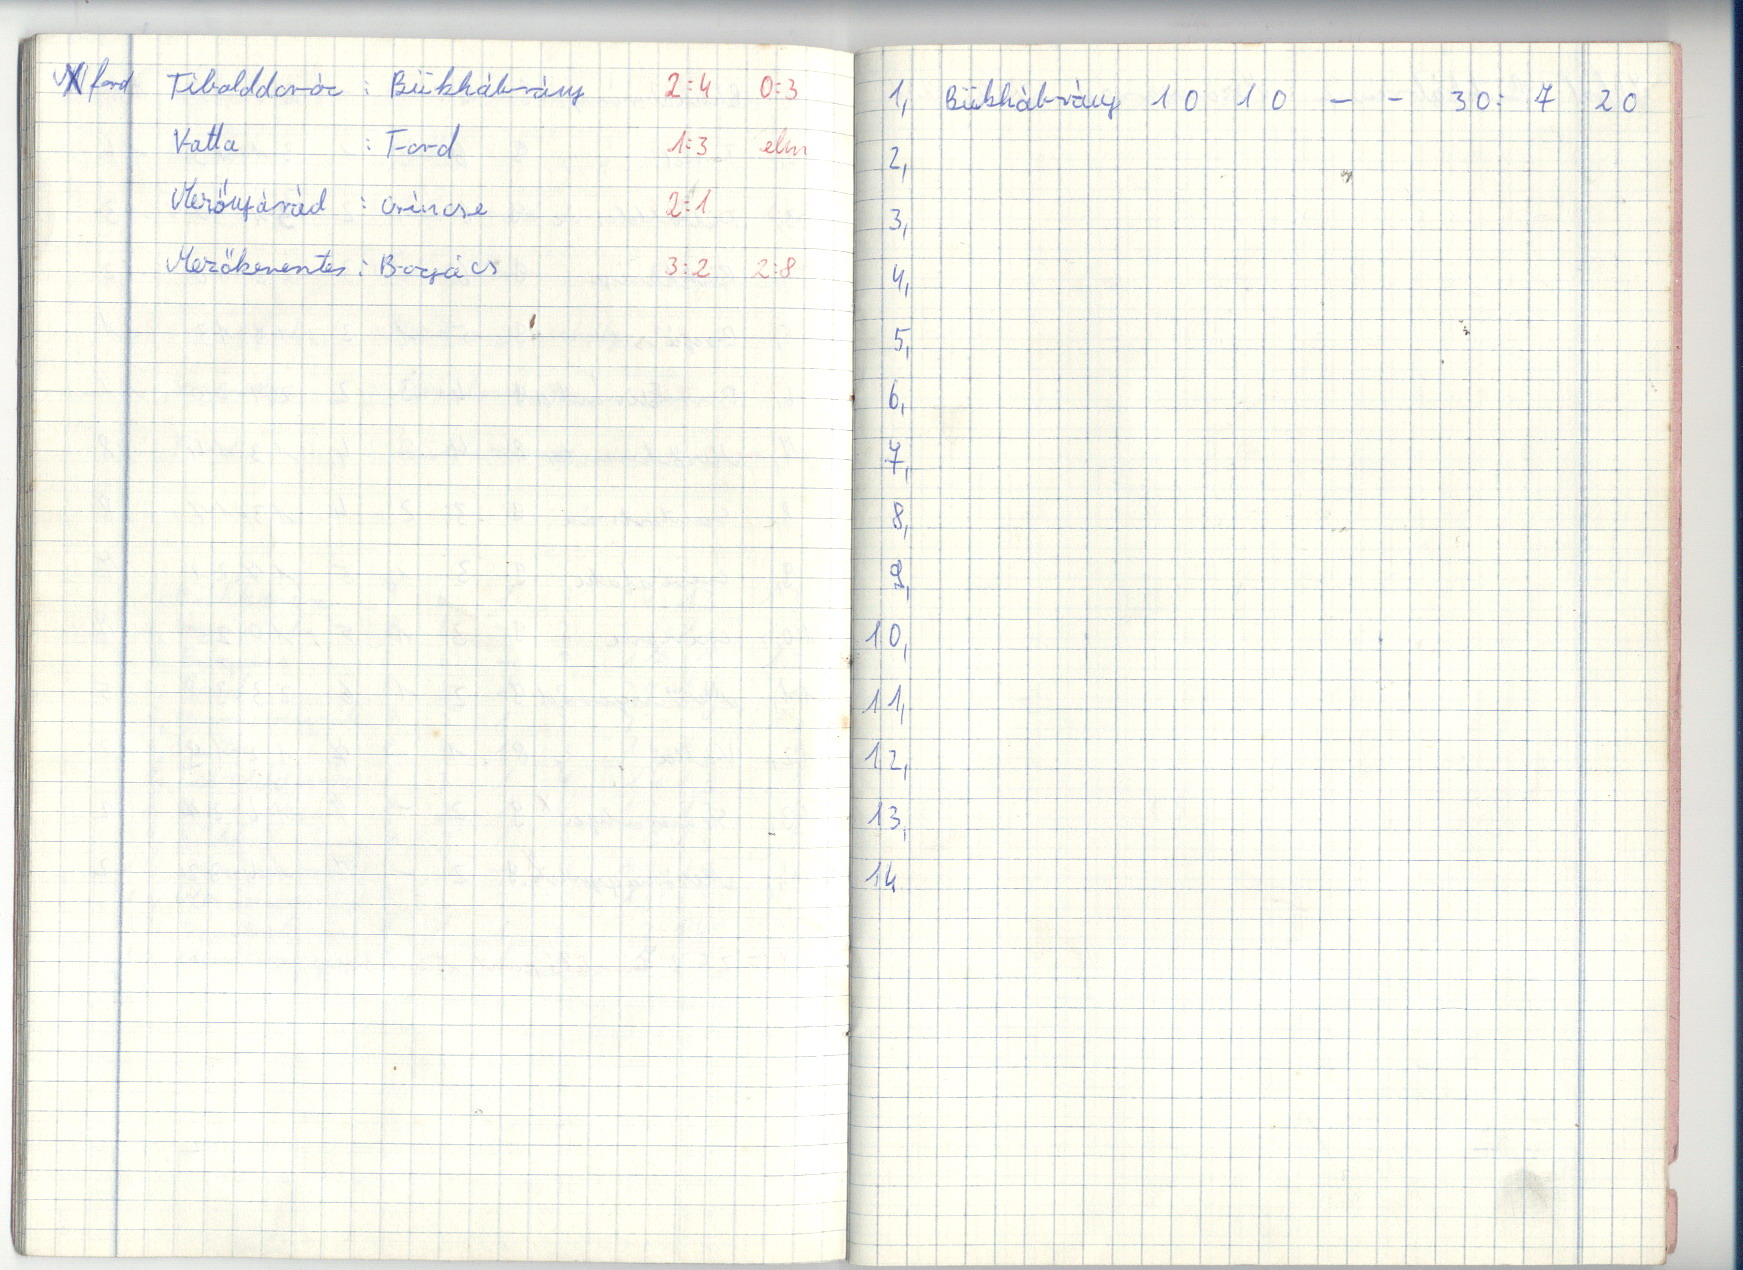 X ford Tibolddaróc : Bükkábrány 2:4 0:3
Vatta : Tard 1:3 elm
Mezőnyárád : Csincse 2:1
Mezőkeresztes : Bogács 3:2 2:8
1, Bükkábrány 10 10 - - 30: 7 20
2,
3,
4,
5,
6,
7,
8,
9,
10,
11,
12,
13,
14